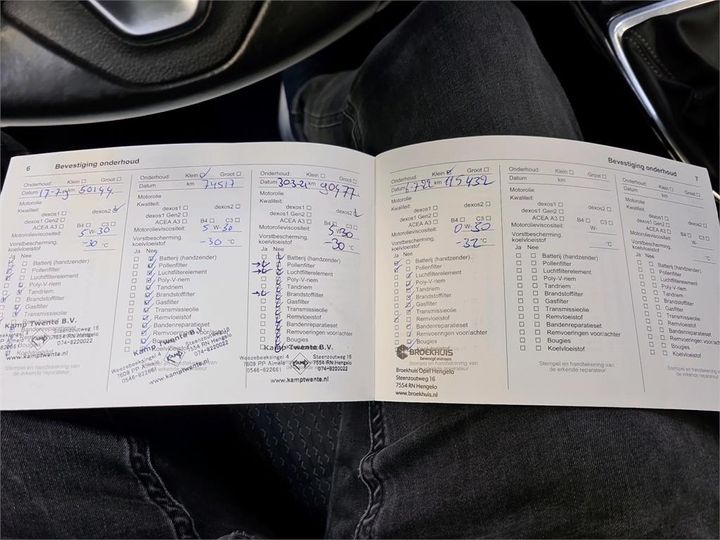 6 Bevestiging onderhoud
Onderhoud: Klein Groot
Datum 17-7-19 km 50144
Motorolie
Kwaliteit:
dexos1 dexos2
dexos1 Gen2
ACEA A3 B4 C3
Motorolieviscositeit: 5 W-30
Vorstbescherming, koelvloeistof -30 °C
Ja Nee
Batterij (handzender)
Pollenfilter
Luchtfilterelement
Poly-V-riem
Tandriem
Brandstoffilter
Gasfilter
Transmissieolie
Remvloeistof
Kamp Twente B.V.
Steenzoutweg 16
7554 RN Hengelo
074-8200022
www.kamptwente.nl
Onderhoud: Klein Groot
Datum km 74517
Motorolie
Kwaliteit:
dexos1 dexos2
dexos1 Gen2
ACEA A3 B4 C3
Motorolieviscositeit: 5 W-30
Vorstbescherming, koelvloeistof -30 °C
Ja Nee
Batterij (handzender)
Pollenfilter
Luchtfilterelement
Poly-V-riem
Tandriem
Brandstoffilter
Gasfilter
Transmissieolie
Remvloeistof
Bandenreparatieset
Remvoeringen voor/achter
Kamp Twente B.V.
Onderhoud: Klein Groot
Datum 30-3-21 km 90477
Motorolie
Kwaliteit:
dexos1 dexos2
dexos1 Gen2
ACEA A3 B4 C3
Motorolieviscositeit: 5 W-30
Vorstbescherming, koelvloeistof -30 °C
Ja Nee
Batterij (handzender)
Pollenfilter
Luchtfilterelement
Poly-V-riem
Tandriem
Brandstoffilter
Gasfilter
Transmissieolie
Remvloeistof
Bandenreparatieset
Remvoeringen voor/achter
Kamp Twente B.V.
Steenzoutweg 16
7554 RN Hengelo
074-8200022
www.kamptwente.nl
Bevestiging onderhoud 7
Onderhoud: Klein Groot
Datum 6-7-22 km 115432
Motorolie
Kwaliteit:
dexos1 dexos2
dexos1 Gen2
ACEA A3 B4 C3
Motorolieviscositeit: 0 W-30
Vorstbescherming, koelvloeistof -32 °C
Ja Nee
Batterij (handzender)
Pollenfilter
Luchtfilterelement
Poly-V-riem
Tandriem
Brandstoffilter
Gasfilter
Transmissieolie
Remvloeistof
Bandenreparatieset
Remvoeringen voor/achter
Bougies
BROEKHUIS
Broekhuis Opel Hengelo
Steenzoutweg 16
7554 RN Hengelo
www.broekhuis.nl
Onderhoud: Klein Groot
Datum km
Motorolie
Kwaliteit:
dexos1 dexos2
dexos1 Gen2
ACEA A3 B4 C3
Motorolieviscositeit: W-
Vorstbescherming, koelvloeistof °C
Ja Nee
Batterij (handzender)
Pollenfilter
Luchtfilterelement
Poly-V-riem
Tandriem
Brandstoffilter
Gasfilter
Transmissieolie
Remvloeistof
Bandenreparatieset
Remvoeringen voor/achter
Bougies
Koelvloeistof
Stempel en handtekening van
de erkende reparateur
Onderhoud: Klein Groot
Datum km
Motorolie
Kwaliteit:
dexos1 dexos2
dexos1 Gen2
ACEA A3 B4 C3
Motorolieviscositeit: W-
Vorstbescherming, koelvloeistof °C
Ja Nee
Batterij (handzender)
Pollenfilter
Luchtfilterelement
Poly-V-riem
Tandriem
Brandstoffilter
Gasfilter
Transmissieolie
Remvloeistof
Bandenreparatieset
Remvoeringen voor/achter
Bougies
Koelvloeistof
Stempel en handtekening van
de erkende reparateur